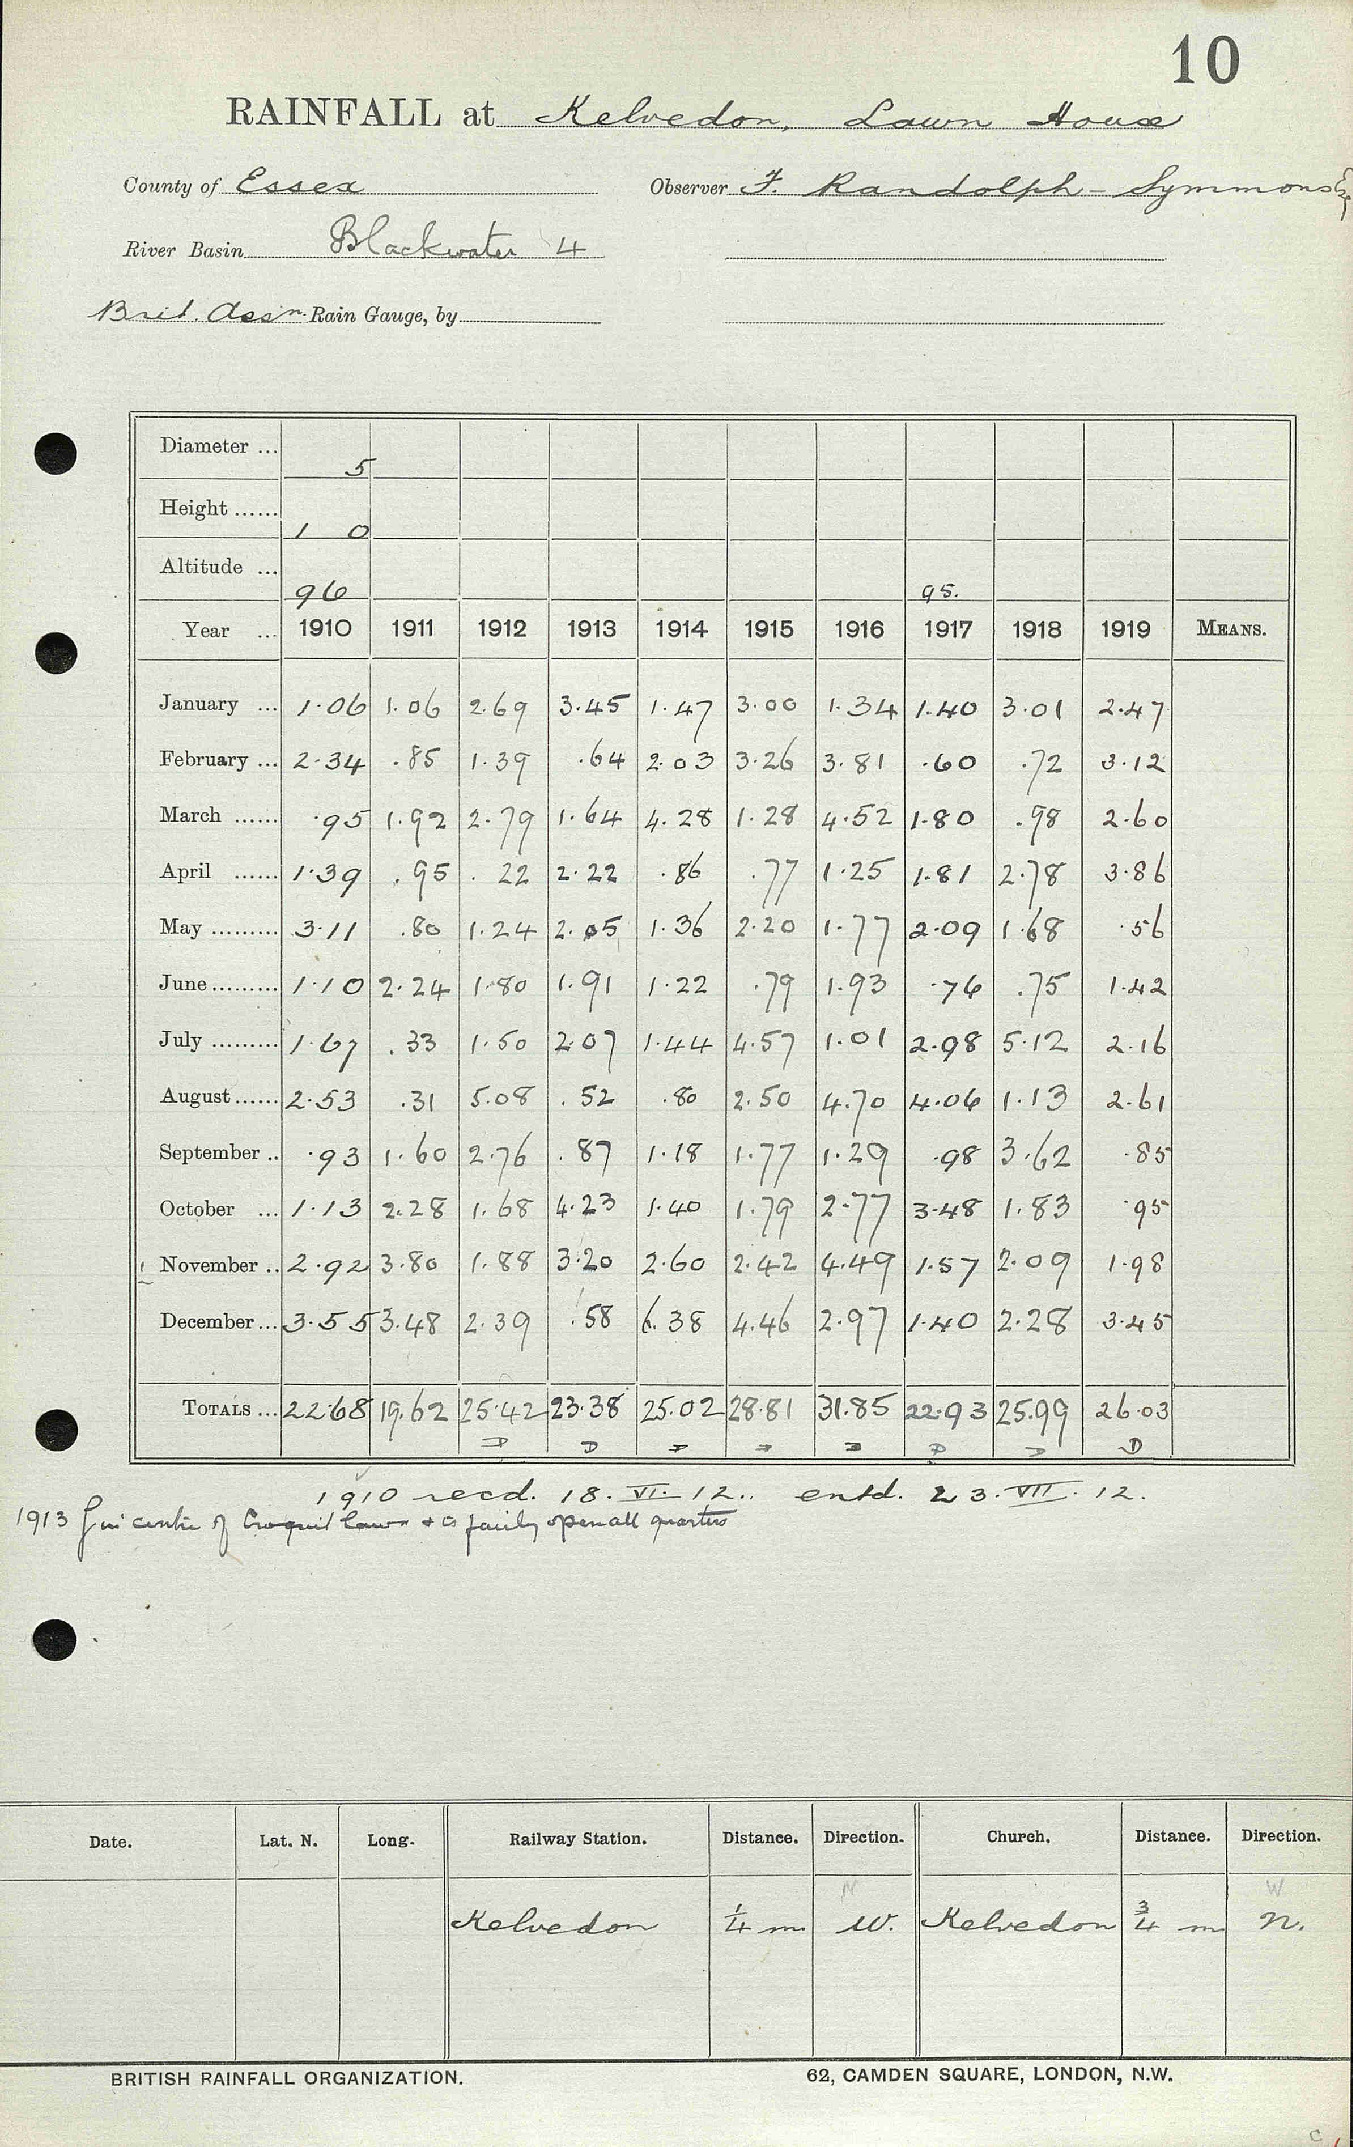 10
RAINFALL at Kelvedon, Lawn House
County of Essex Observer F. Randolph-Symmons Esq
River Basin Blackwater 4
Brit. Assn. Rain Gauge, by
Diameter ... 5
Height ...... 1 0
Altitude ... 96 95.
Year ... 1910 1911 1912 1913 1914 1915 1916 1917 1918 1919 MEANS.
January ... 1.06 1.06 2.69 3.45 1.47 3.00 1.34 1.40 3.01 2.47
February ... 2.34 .85 1.39 .64 2.03 3.26 3.81 .60 .72 3.12
March ...... .95 1.92 2.79 1.64 4.28 1.28 4.52 1.80 .98 2.60
April ...... 1.39 .95 .22 2.22 .86 .77 1.25 1.81 2.78 3.86
May ......... 3.11 .80 1.24 2.05 1.36 2.20 1.77 2.09 1.68 .56
June ......... 1.10 2.24 1.80 1.91 1.22 .79 1.93 .76 .75 1.42
July ......... 1.67 .33 1.50 2.07 1.44 4.57 1.01 2.98 5.12 2.16
August ...... 2.53 .31 5.08 .52 .80 2.50 4.70 4.06 1.13 2.61
September .. .93 1.60 2.76 .87 1.18 1.77 1.29 .98 3.62 .85
October ... 1.13 2.28 1.68 4.23 1.40 1.79 2.77 3.48 1.83 .95
November .. 2.92 3.80 1.88 3.20 2.60 2.42 4.49 1.57 2.09 1.98
December ... 3.55 3.48 2.39 .58 6.38 4.46 2.97 1.40 2.28 3.45
TOTALS ... 22.68 19.62 25.42 23.38 25.02 28.81 31.85 22.93 25.99 26.03
D D D D D D D D
1910 recd. 18.VI.12.. entd. 23.VIII.12.
1913 in centre of Croquet lawn & is fairly open all quarters
Date. Lat. N. Long. Railway Station. Distance. Direction. Church. Distance. Direction.
N W
Kelvedon 1/4 m W. Kelvedon 3/4 m N.
BRITISH RAINFALL ORGANIZATION. 62, CAMDEN SQUARE, LONDON, N.W.